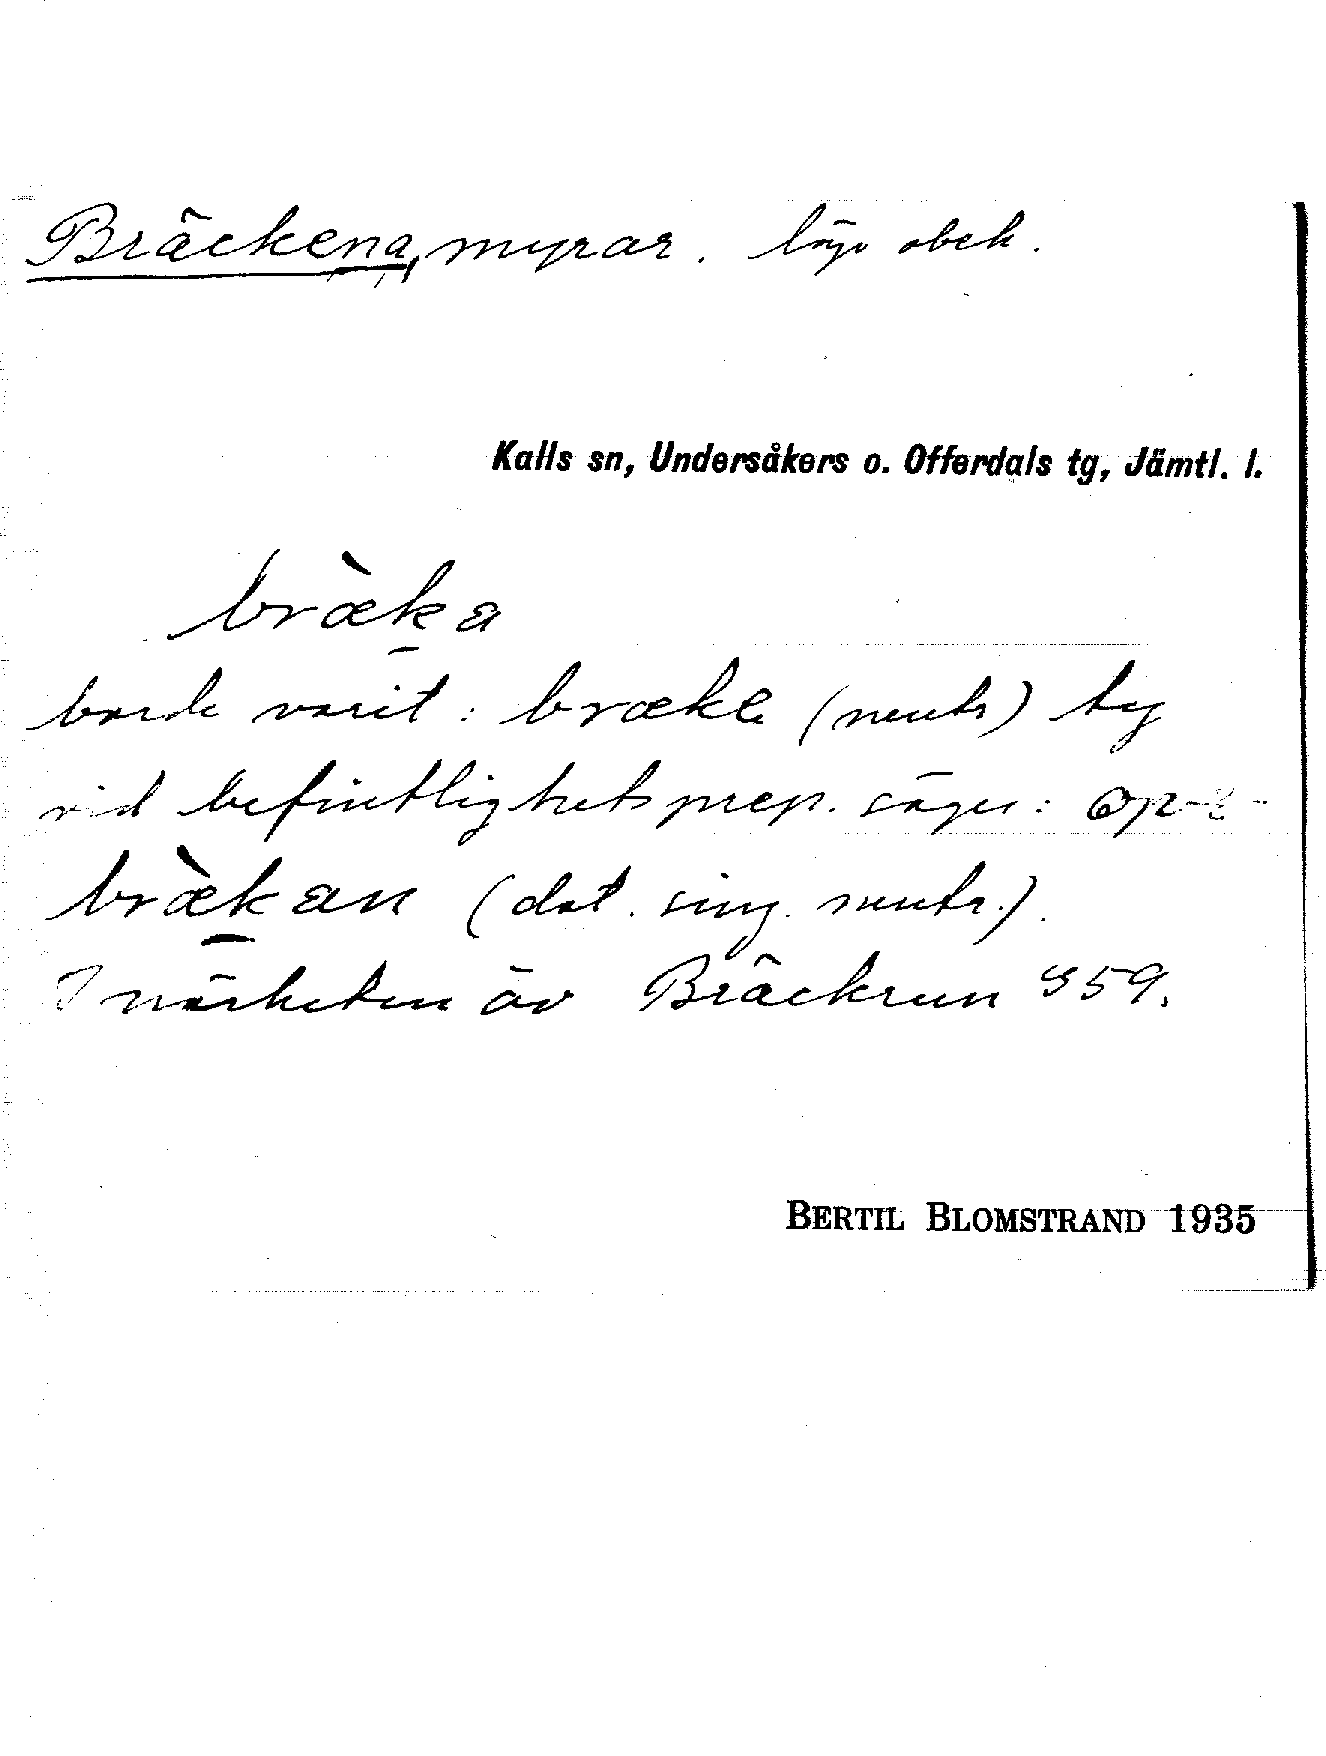 Bräckena, myrar. läge obek.
Kalls sn, Undersåkers o. Offerdals tg, Jämtl. l.
bræ̀ka
borde varit: bræke (neutr) ty
vid befintlighetsprep. säges: op-
bræ̀kan (dat. sing. neutr.).
I närheten av Bräckrun 959.
BERTIL BLOMSTRAND 1935